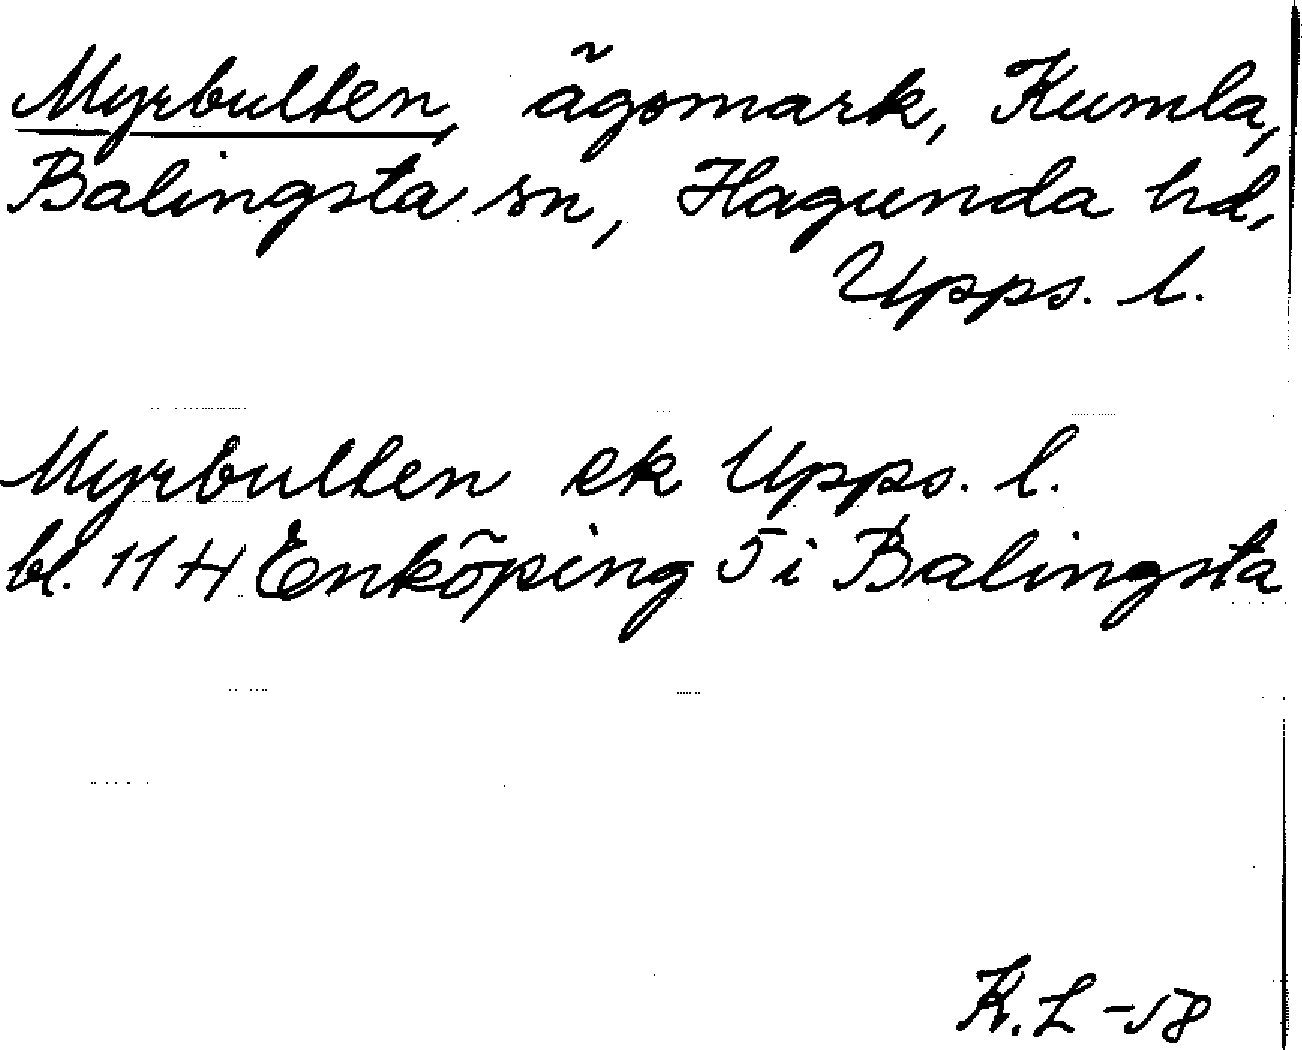 Myrbulten, ägomark, Kumla,
Balingsta sn, Hagunda hd,
Upps. l.
Myrbulten ek Upps. l.
bl. 11 H Enköping 5 i Balingsta
K. L -58